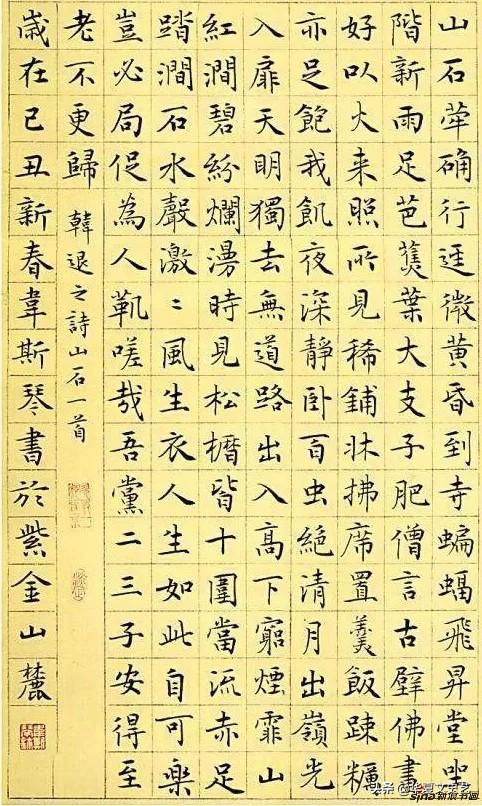 山石荦确行逕微黄昏到寺蝙蝠飛昇堂坐
階新雨足芭蕉葉大支子肥僧言古壁佛畫
好以火来照所見稀鋪牀拂席置羹飯踈糲
亦足飽我飢夜深靜卧百虫絶清月出嶺光
入扉天明獨去無道路出入高下窮煙霏山
紅澗碧紛爛漫時見松櫪皆十圍當流赤足
踏澗石水聲激〻風生衣人生如此自可樂
豈必局促為人鞿嗟哉吾黨二三子安得至
老不更歸 韓退之詩山石一首
歲在己丑新春韋斯琴書於紫金山麓
头条
sina新浪书画